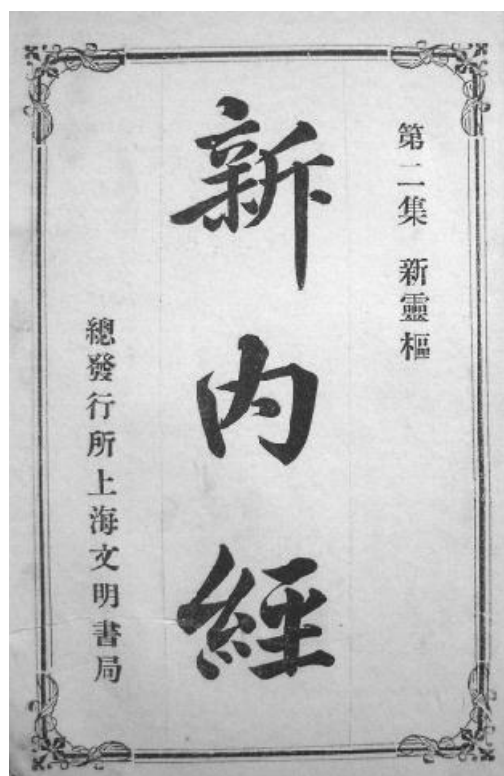 第二集 新靈樞
新内經
總發行所上海文明書局